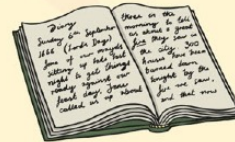 Diary
Sunday 6th September
1666 (Lord's Day)
Some of our maids
sitting up late last
night to get things
ready against our
feast day, Jane
called us up about
three in the
morning to tell
us about a great
fire they saw in
the city. 300
houses have been
burned down
tonight by the
fire we saw,
and that now